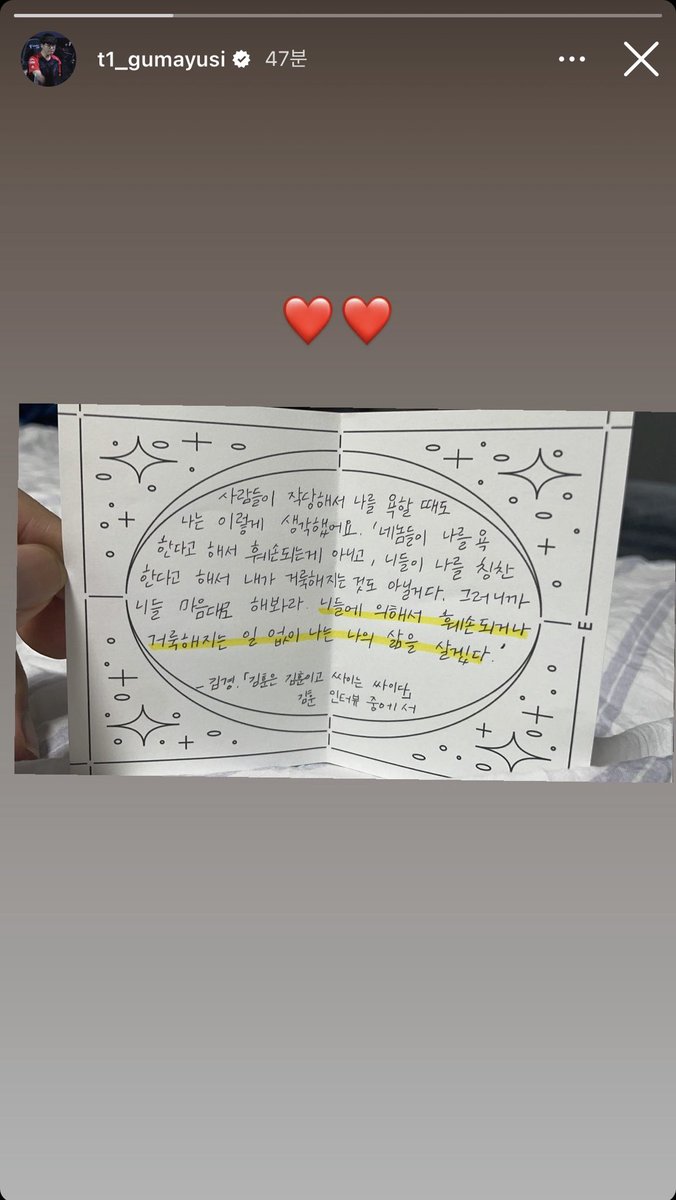 t1_gumayusi 47분
사람들이 작당해서 나를 욕할 때도
나는 이렇게 생각했어요. '네놈들이 나를 욕
한다고 해서 훼손되는게 아니고, 니들이 나를 칭찬
한다고 해서 내가 거룩해지는 것도 아닐거다. 그러니까
니들 마음대로 해봐라. 니들에 의해서 훼손되거나
거룩해지는 일 없이 나는 나의 삶을 살겠다.'
- 김경.「김훈은 김훈이고 싸이는 싸이다」
김훈 인터뷰 중에서
E